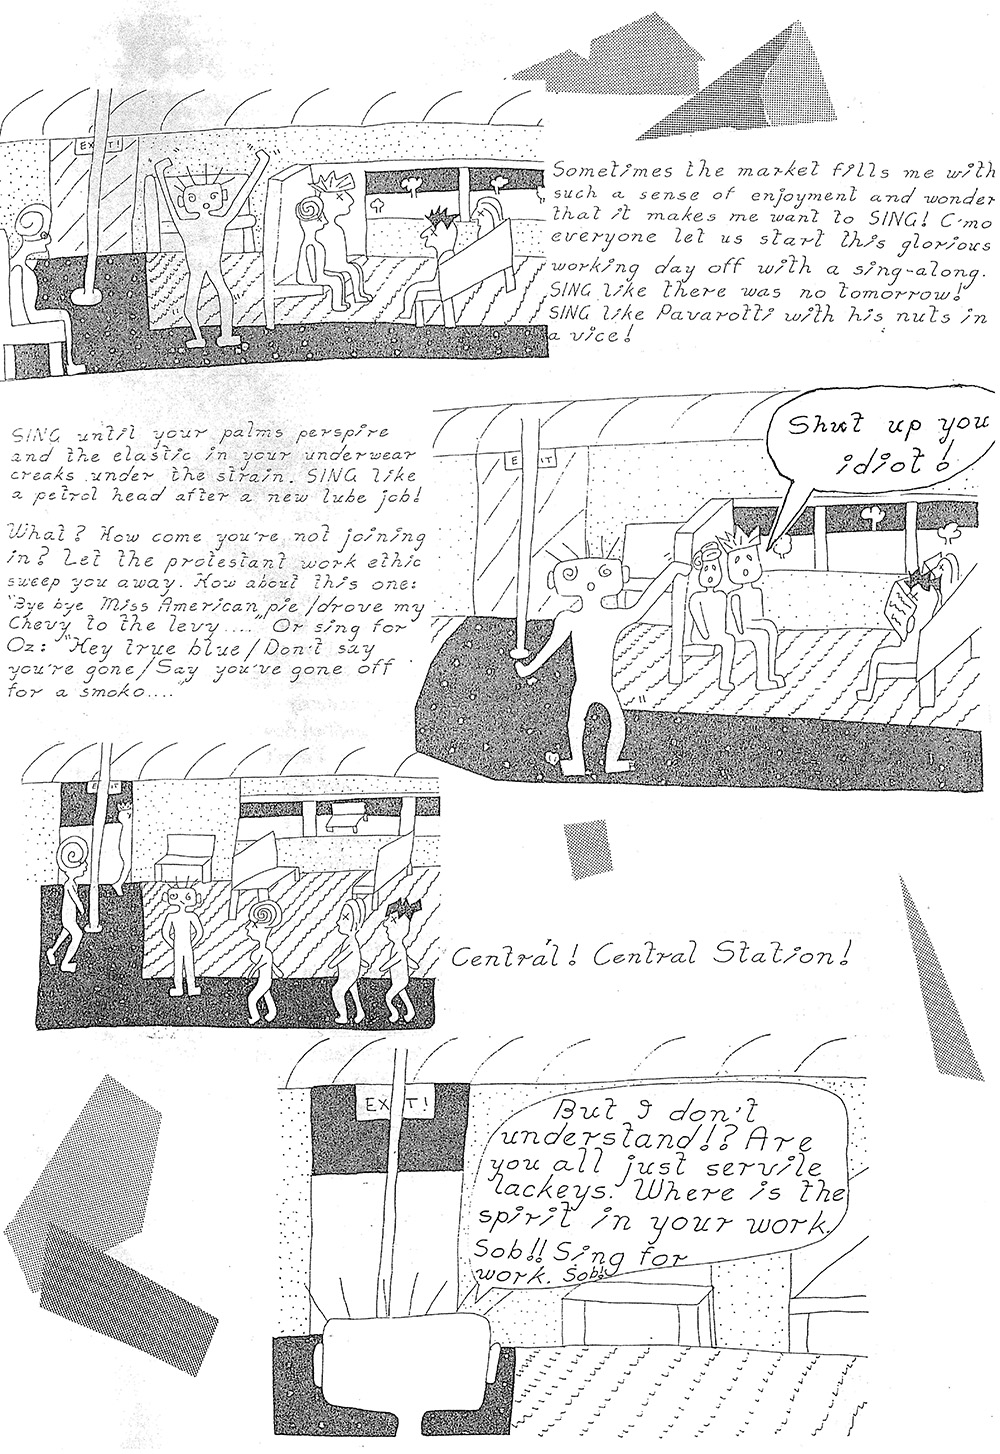 EXIT!
Sometimes the market fills me with
such a sense of enjoyment and wonder
that it makes me want to SING! C'mo
everyone let us start this glorious
working day off with a sing-along.
SING like there was no tomorrow!
SING like Pavarotti with his nuts in
a vice!
SING until your palms perspire
and the elastic in your underwear
creaks under the strain. SING like
a petrol head after a new lube job!
What? How come you're not joining
in? Let the protestant work ethic
sweep you away. How about this one:
"Bye bye Miss American pie/drove my
Chevy to the levy...." Or sing for
Oz: "Hey true blue/Don't say
you're gone/Say you've gone off
for a smoko...."
E IT
Shut up you
idiot!
E IT
Central! Central Station!
EX T!
But I don't
understand!? Are
you all just servile
lackeys. Where is the
spirit in your work.
Sob!! Sing for
work. Sob!!